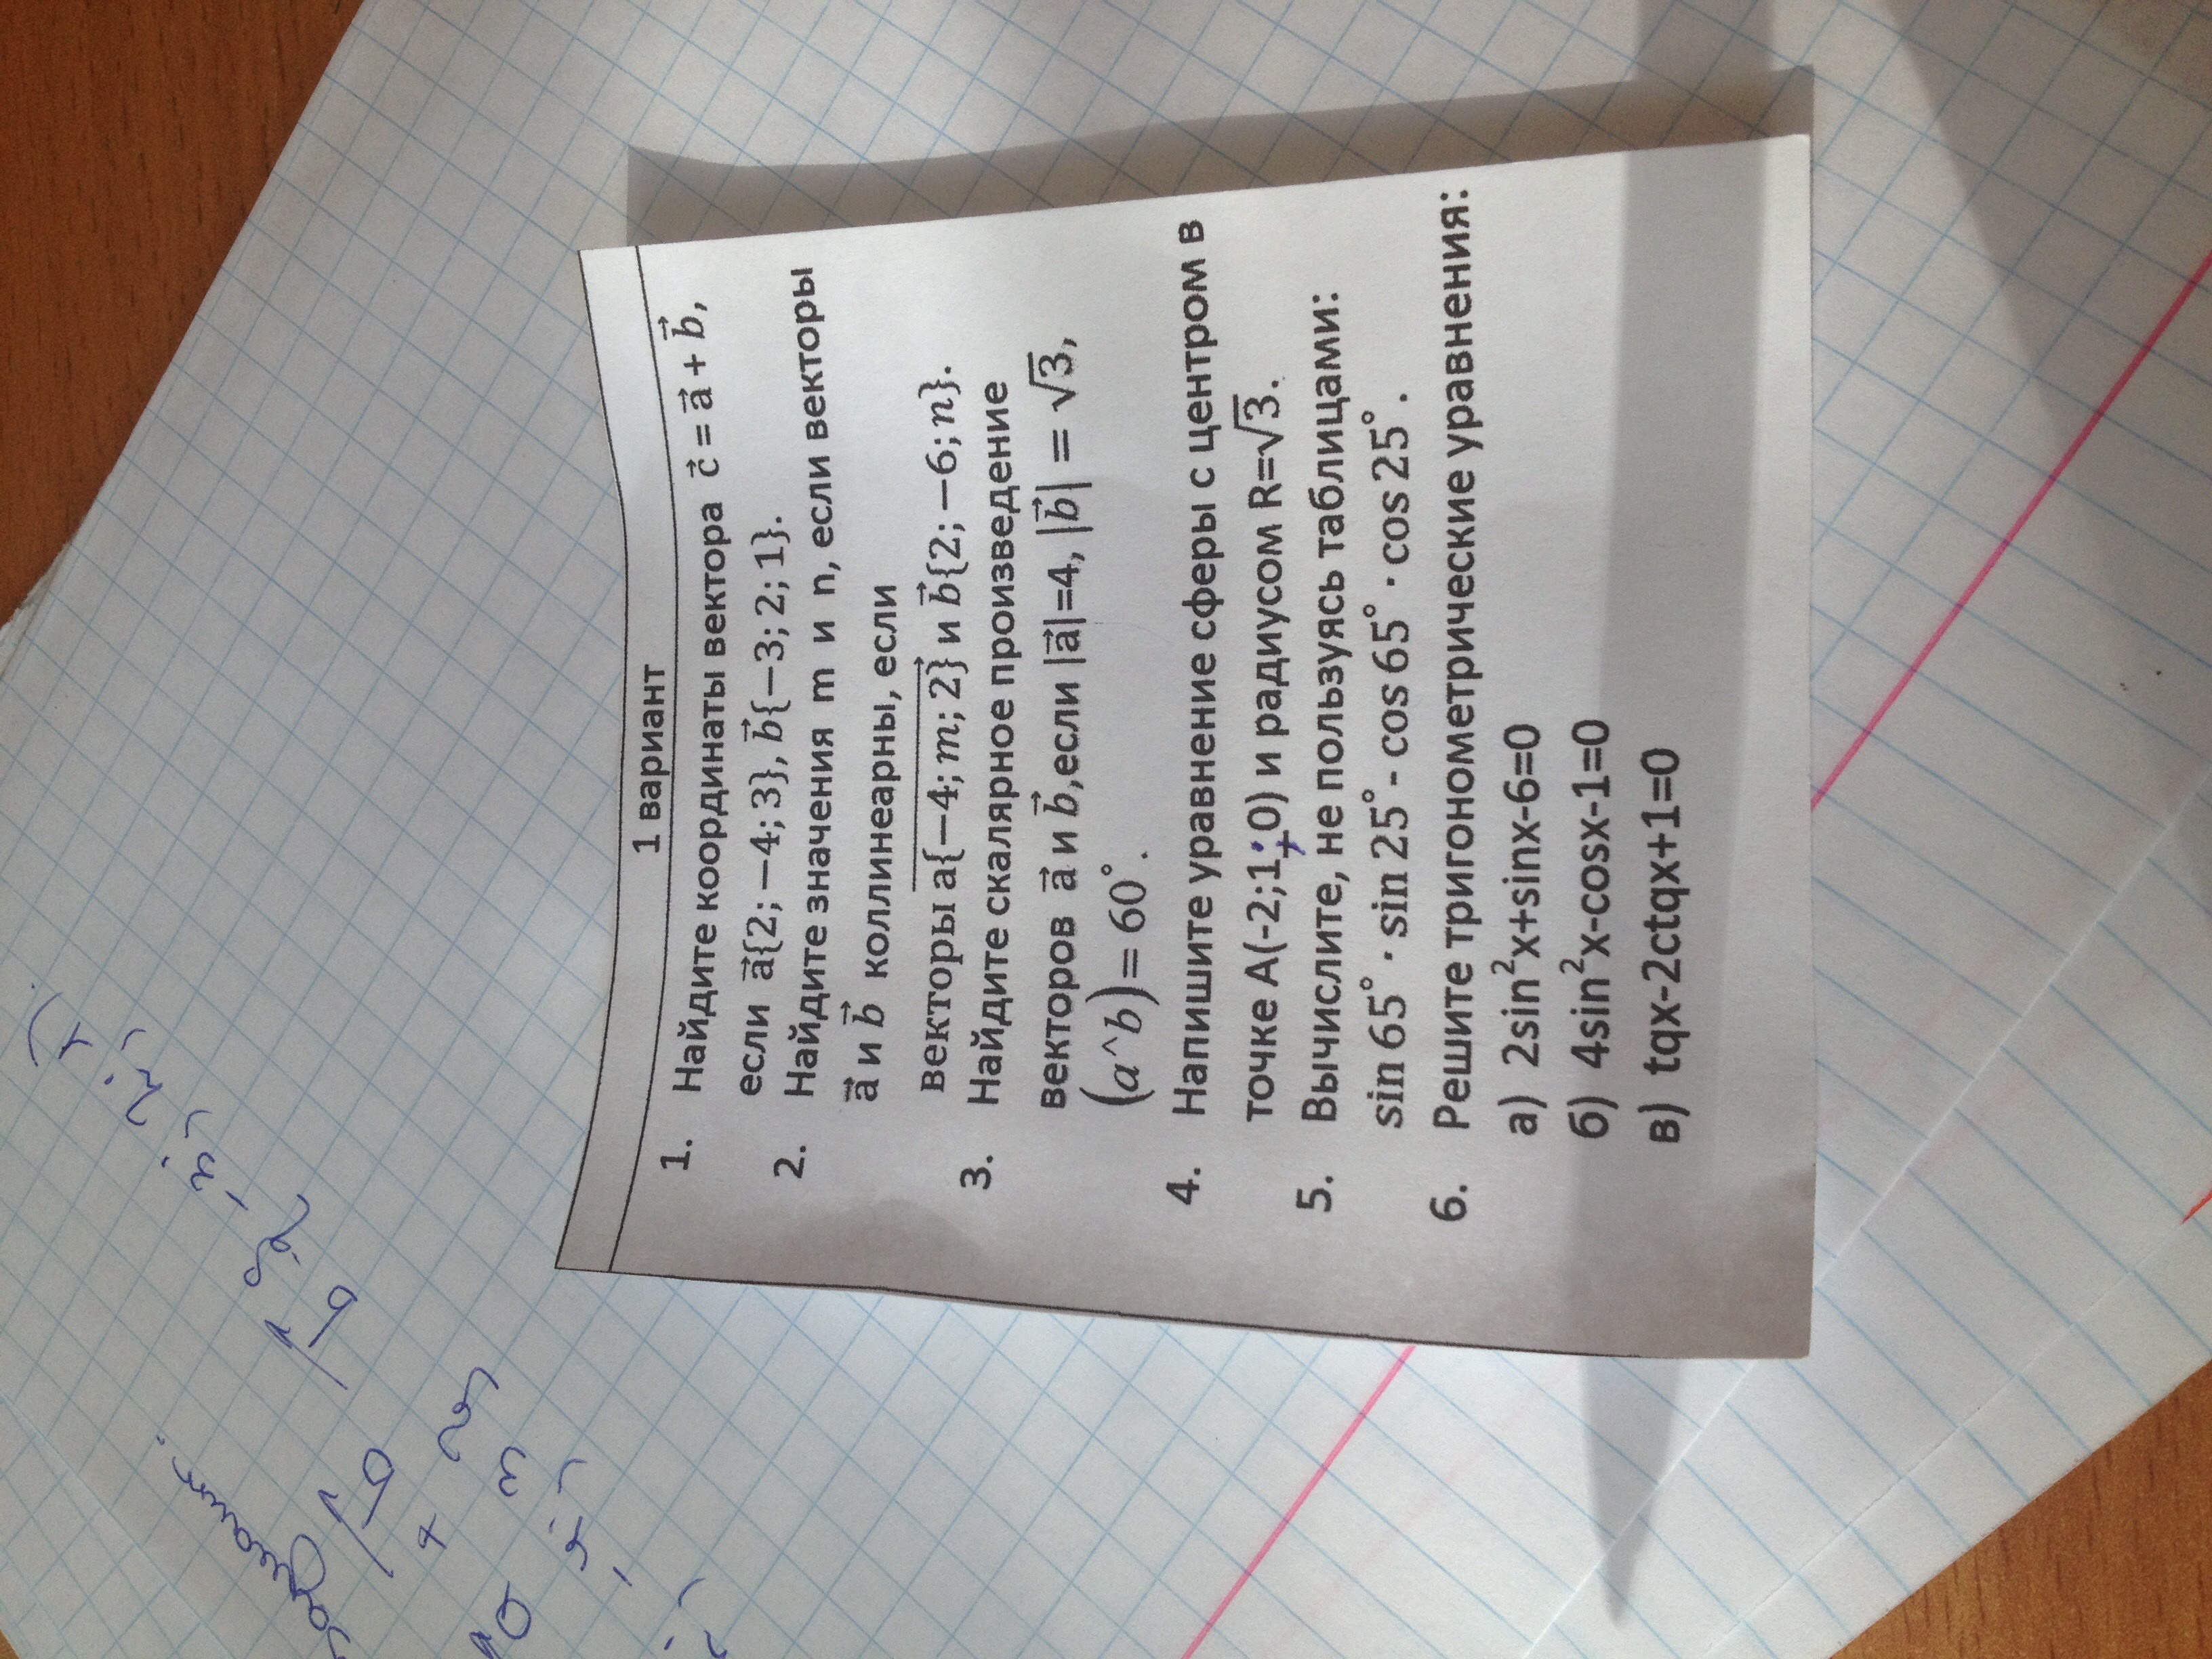 1 вариант
1. Найдите координаты вектора c⃗ = a⃗ + b⃗,
если a⃗{2; −4; 3}, b⃗{−3; 2; 1}.
2. Найдите значения m и n, если векторы
a⃗ и b⃗ коллинеарны, если
векторы a{−4; m; 2} и b⃗{2; −6; n}.
3. Найдите скалярное произведение
векторов a⃗ и b⃗,если |a⃗|=4, |b⃗| = √3,
(a^b)= 60°.
4. Напишите уравнение сферы с центром в
точке А(-2;1;0) и радиусом R=√3.
5. Вычислите, не пользуясь таблицами:
sin 65° · sin 25° - cos 65° · cos 25° .
6. Решите тригонометрические уравнения:
а) 2sin²x+sinx-6=0
б) 4sin²x-cosx-1=0
в) tqx-2ctqx+1=0